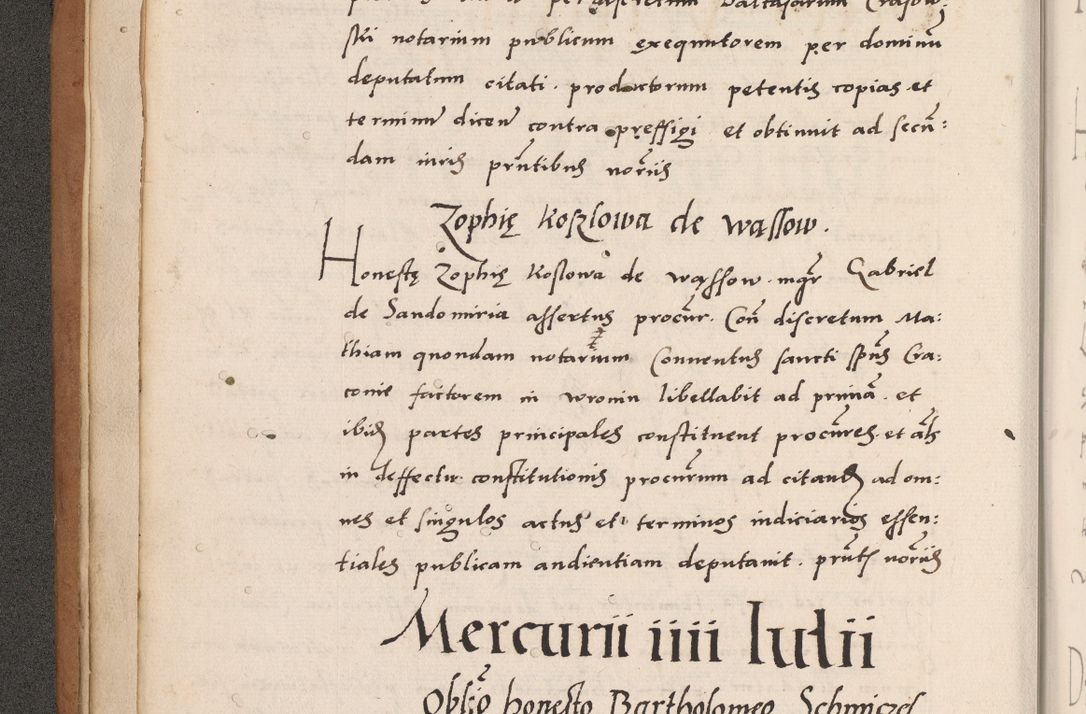 ski notarium publicum exequutorem per dominū
deputatum citati · productorum petentis copias · et
terminū dicen̄ contra pręffigi et obtinuit ad secū:
dam iuris prn̄tibus noriis
Zophię Koszlowa de Wąssow ·
Honestę Zophię Koslowa de Wąssow · mgr̄ Gabriel
de Sandomiria assertus procur̄ · Con̄ discretum Ma:
thiam quondam notarium Conuentus sancti sp̄us Cra:
couie factorem in wronin libellabit ad primā · et
ibid partes principales constituent procūres · et al̄s
in deffectu constitutionis procūrum ad citand ad om:
nes et singulos actus et terminos iudiciarios essen:
tiales publicam audientiam deputauit · prn̄t noriis
Mercurii iiii Iulii
Oblīo honesto Bartholomeo Schmiczel